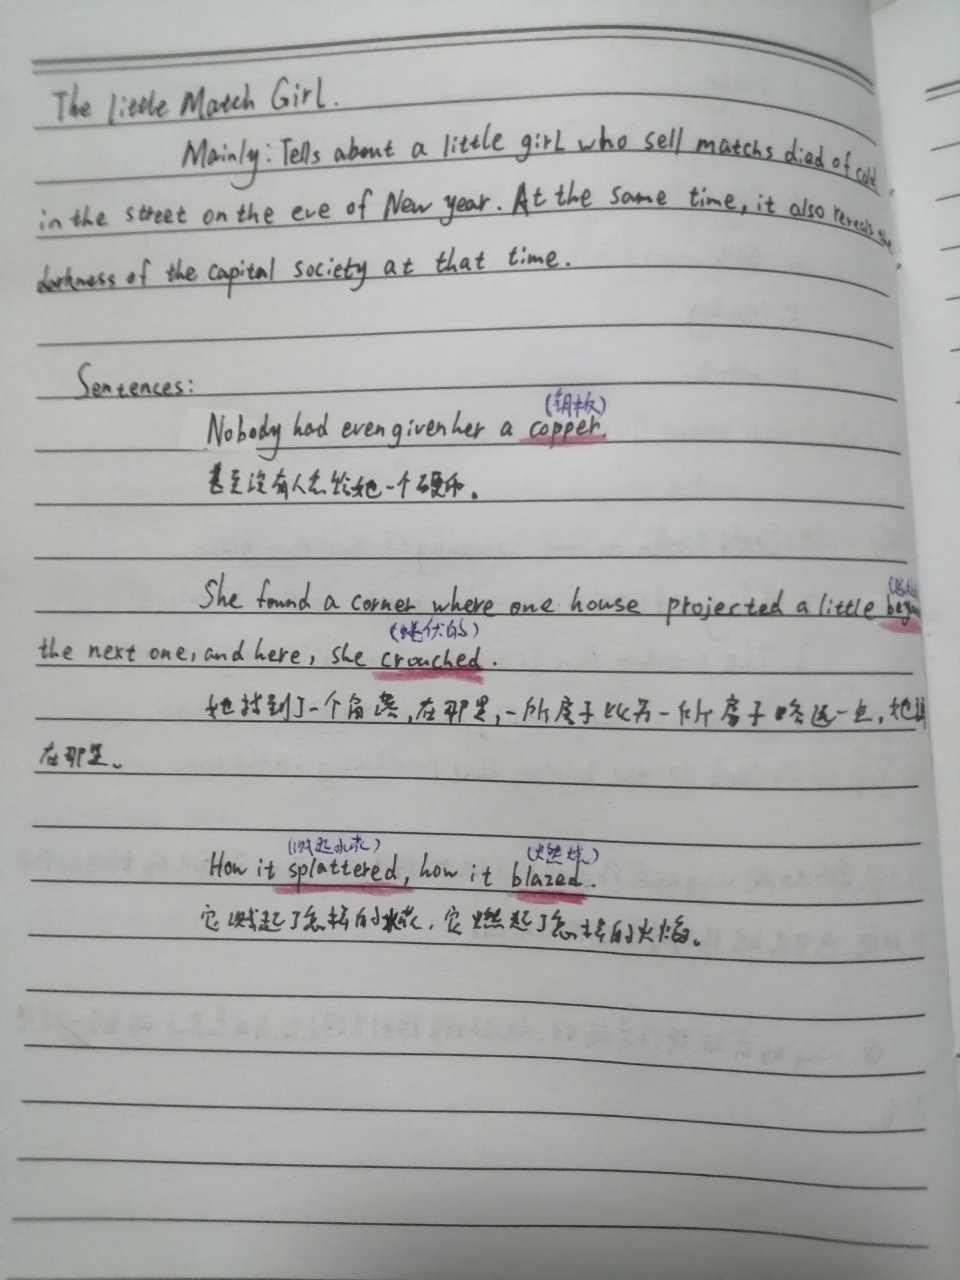 The little Match Girl.
Mainly: Tells about a little girl who sell matchs died of cold
in the street on the eve of New year. At the same time, it also reveals the
darkness of the capital society at that time.
Sentences:
(铜板)
Nobody had even given her a copper.
甚至没有人忘给她一个硬币。
She found a corner where one house projected a little
(蜷伏的)
the next one, and here, she crouched.
她找到了一个角落,在那里,一所房子比另一所房子略远一点,她
在那里。
(溅起水花) (燃烧)
How it splattered, how it blazed.
它溅起了怎样的水花,它燃起了怎样的火焰。